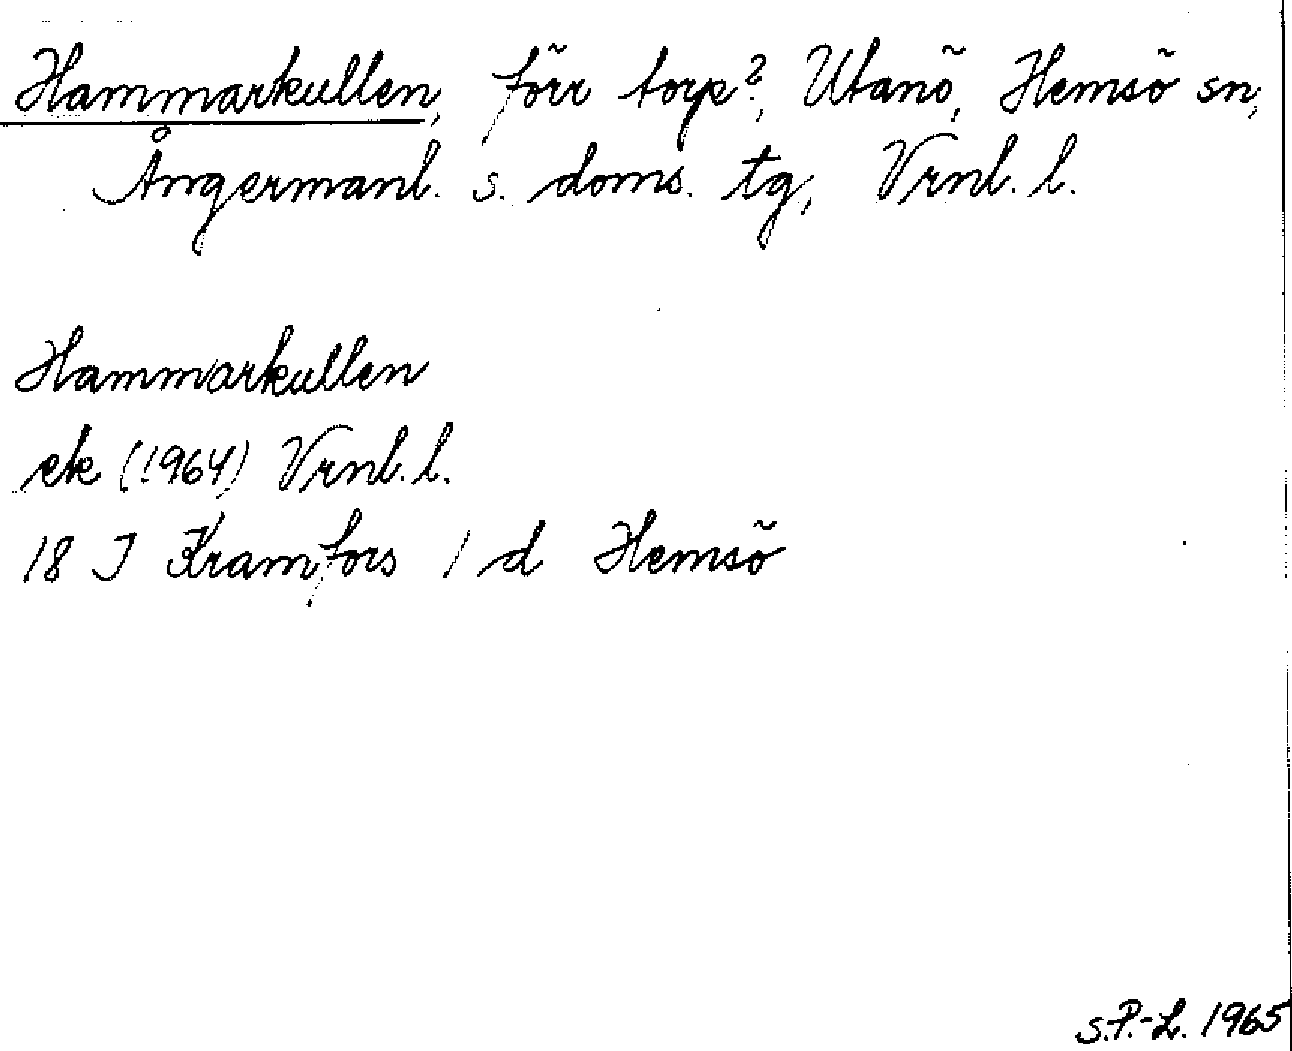 Hammarkullen, förr torp?, Utanö, Hemsö sn,
Ångermanl. s. doms. tg, Vrnl. l.
Hammarkullen
ek (1964) Vrnl. l.
18 J Kramfors 1 d Hemsö
S.P.-L. 1965